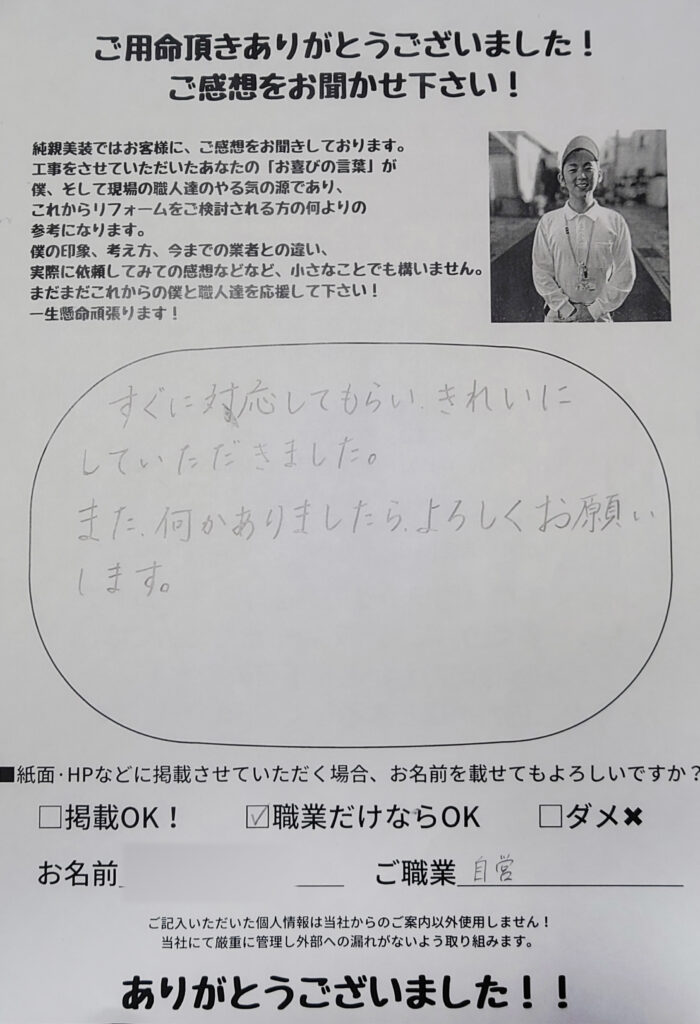 ご用命頂きありがとうございました！
ご感想をお聞かせ下さい！
純親美装ではお客様に、ご感想をお聞きしております。
工事をさせていただいたあなたの「お喜びの言葉」が
僕、そして現場の職人達のやる気の源であり、
これからリフォームをご検討される方の何よりの
参考になります。
僕の印象、考え方、今までの業者との違い、
実際に依頼してみての感想などなど、小さなことでも構いません。
まだまだこれからの僕と職人達を応援して下さい！
一生懸命頑張ります！
すぐに対応してもらい、きれいに
していただきました。
また、何かありましたら、よろしくお願い
します。
■紙面･HPなどに掲載させていただく場合、お名前を載せてもよろしいですか？
□掲載OK！ ☑職業だけならOK □ダメ✖
お名前 ご職業 自営
ご記入いただいた個人情報は当社からのご案内以外使用しません！
当社にて厳重に管理し外部への漏れがないよう取り組みます。
ありがとうございました！！